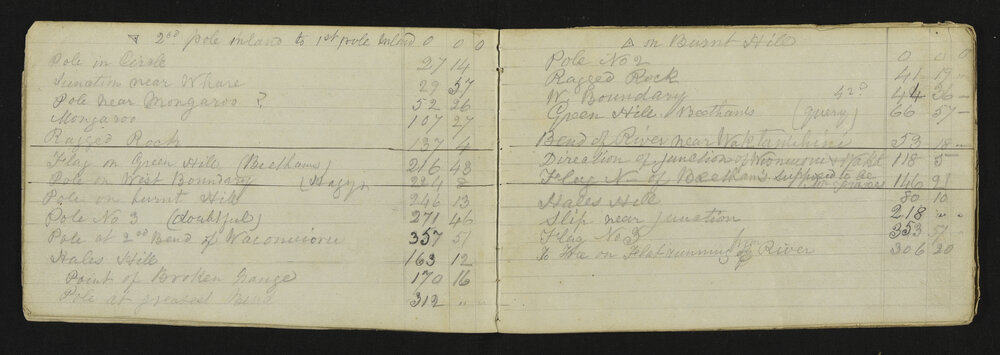 2nd pole inland to 1st pole Inland 0 0 0
Pole in Circle 27 14
Junction near Whare 29 37
Pole near Mongaroo ? 52 26
Mongaroo 107 27
Ragged Rock 137 4
Flag on Green Hill (Beethams) 216 43
Pole on West Boundary 224 8
Pole on Burnt Hill 246 13
Pole No 3 (doubtful) 271 46
Pole at 2nd Bend of 357 51
Hales Hill 163 12
Point of Broken Range 170 16
Pole at greatest Bend 312 " "
△ on Burnt Hill
Pole No 2 0 0 0
Ragged Rock 41 19
W Boundary 36
Green Hill Beethams (query) 66 57
Bend of River near 53 18
Direction of junction of 118 5
Flag N of Beetham's supposed to be 146 91
Hales Hill 80 10
Slip near junction 218 " "
Flag No 3 353 51
To Tree on Flat running River 306 20